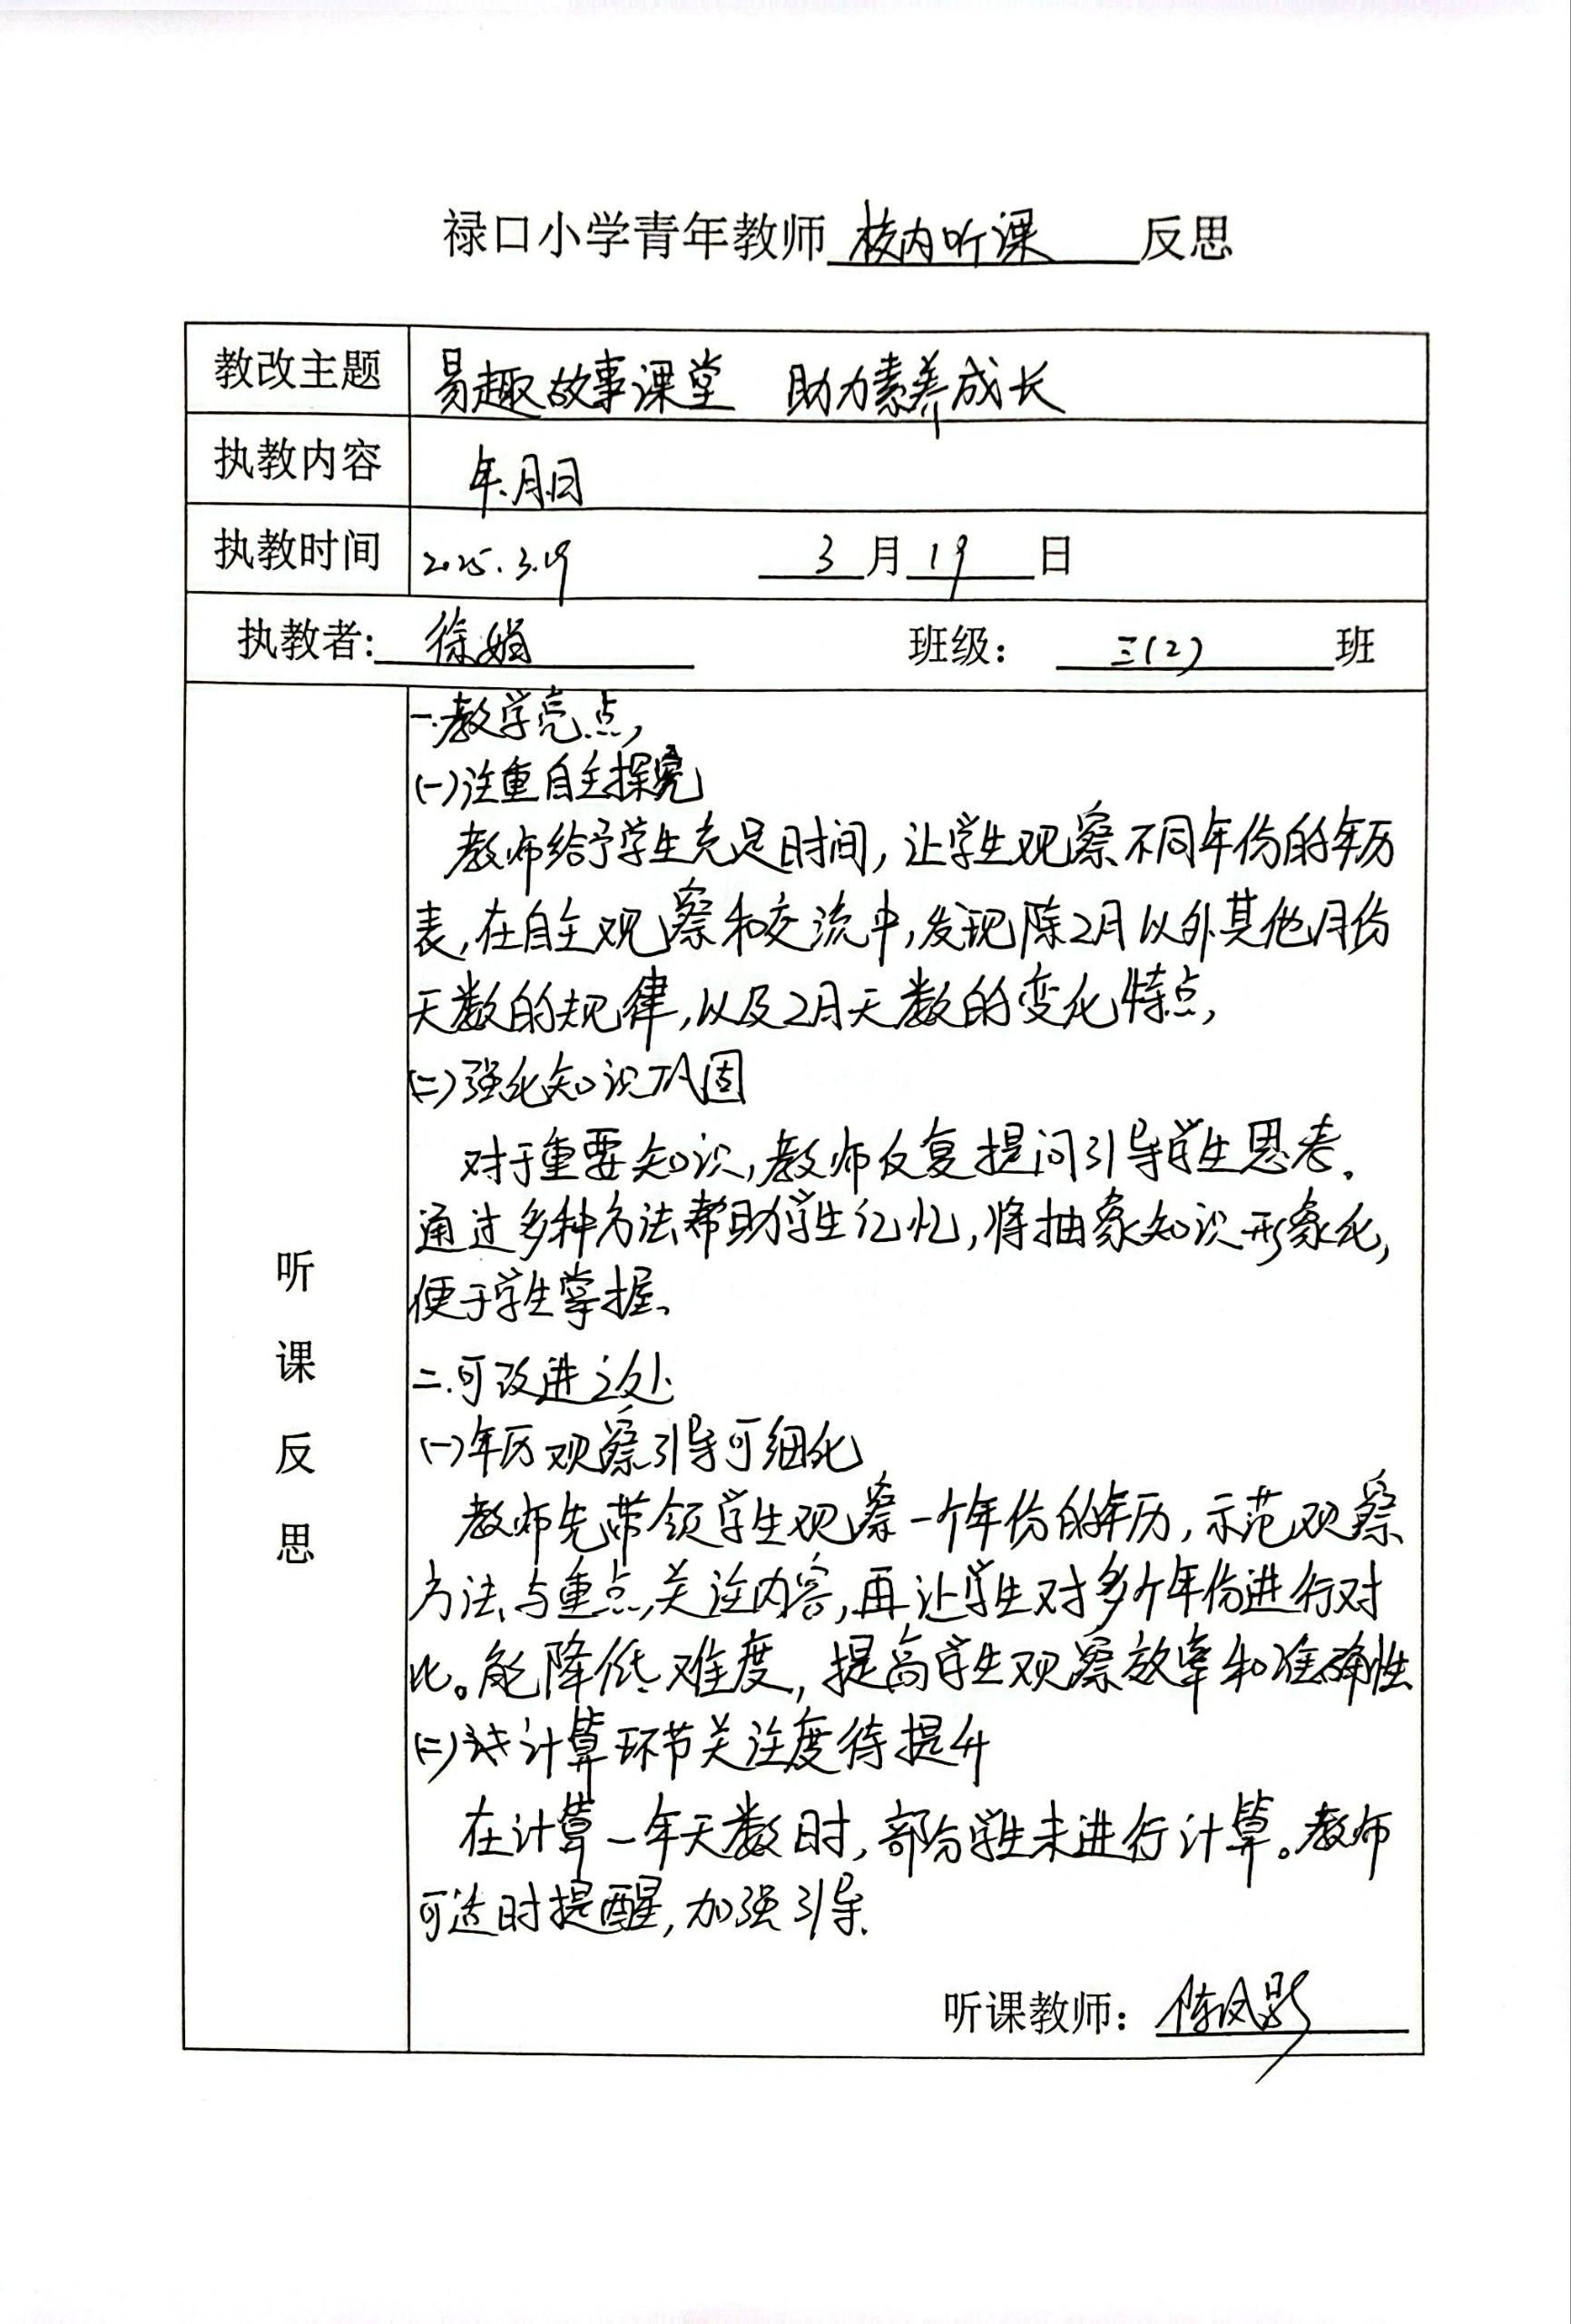 禄口小学青年教师 校内听课 反思
教改主题 易趣故事课堂 助力素养成长
执教内容 年、月、日
执教时间 2025.3.19 3月19日
执教者: 徐娟 班级: 三(2) 班
听课反思
一.教学亮点,
(一)注重自主探究
教师给予学生充足时间,让学生观察不同年份的年历
表,在自主观察和交流中,发现除2月以外其他月份
天数的规律,以及2月天数的变化特点,
(二)强化知识巩固
对于重要知识,教师反复提问引导学生思考、
通过多种方法帮助学生记忆,将抽象知识形象化,
便于学生掌握、
二.可改进之处
(一)年历观察引导可细化
教师先带领学生观察一个年份的年历,示范观察
方法与重点,关注内容,再让学生对多个年份进行对
比。能降低难度,提高学生观察效率和准确性
(二)计算环节关注度待提升
在计算一年天数时,部分学生未进行计算。教师
可适时提醒,加强引导.
听课教师: 陈凤影